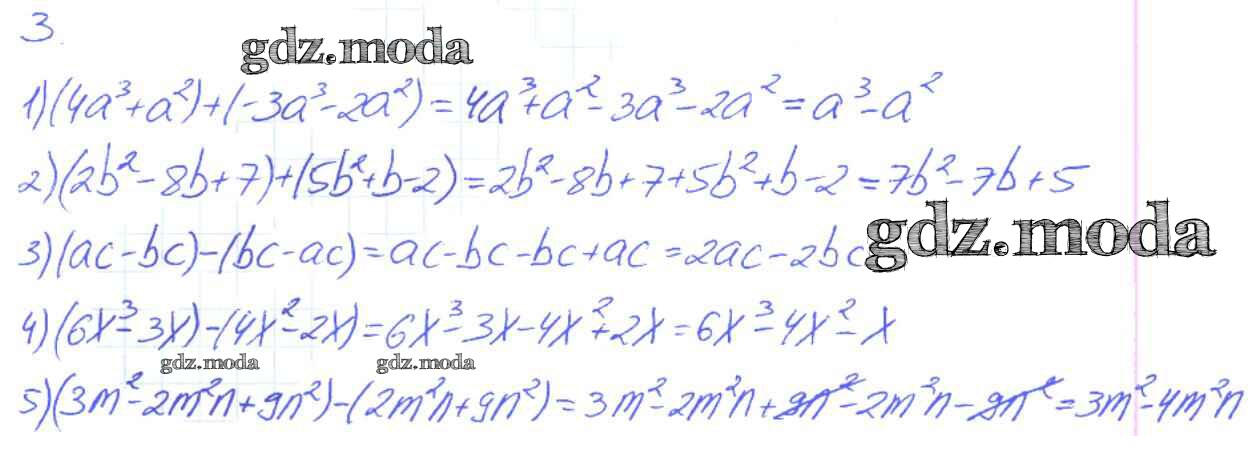 3
gdz.moda
1) (4a³+a²)+(-3a³-2a²)=4a³+a²-3a³-2a²=a³-a²
2) (2b²-8b+7)+(5b²+b-2)=2b²-8b+7+5b²+b-2=7b²-7b+5
gdz.moda
3) (ac-bc)-(bc-ac)=ac-bc-bc+ac=2ac-2bc
4) (6x³-3x)-(4x²-2x)=6x³-3x-4x²+2x=6x³-4x²-x
gdz.moda gdz.moda
5) (3m²-2m²n+9n²)-(2m²n+9n²)=3m²-2m²n+9n²-2m²n-9n²=3m²-4m²n